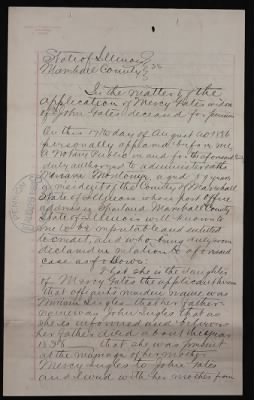 State of Illinois
Marshall County } SS
In the matter of the
application of Mercy Gales widow
of John Gales deceased for pension
On this 17th day of August AD 1886
personally appeared before me
a Notary Public in and for the aforesaid
duly authorized to administer oaths
aged 49 years
a resident of the County of Marshall
State of Illinois whose post office
address Sparland Marshall County
State of Illinois well known to
me to be reputable and entitled
to credit, and who being duly sworn
declared in relation to aforesaid
case as follows
That she is the daughter
of Mercy Gales the applicant herein
that applicants maiden name was
that her father
name was John Lugles that as
she is informed and believes
her father died about the year
1838 that she was present
at the marriage of her mother
Mercy Lugles to John Gales
and lived with her mother from